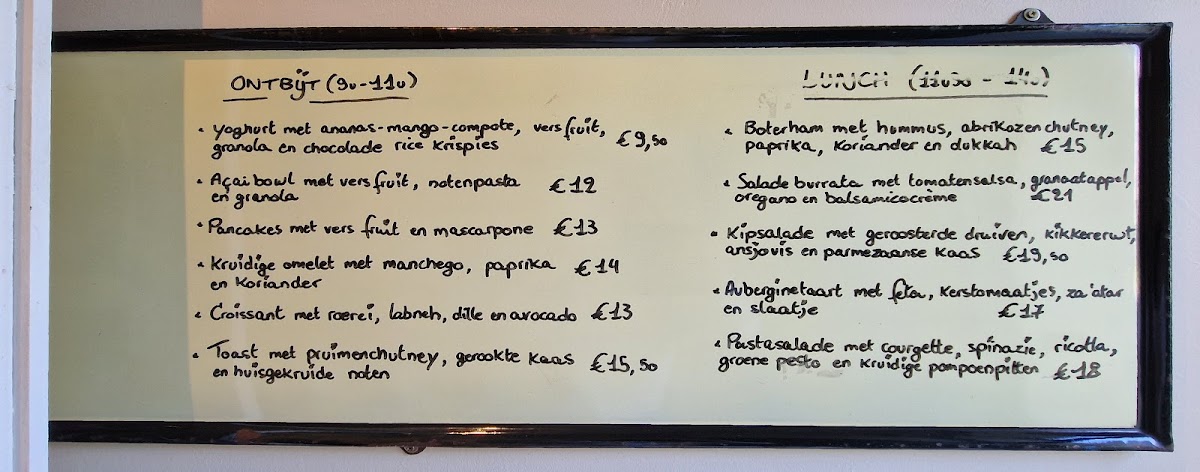 ONTBIJT (9u-11u)
• Yoghurt met ananas-mango-compote, vers fruit,
granola en chocolade rice krispies €9,50
• Açai bowl met vers fruit, notenpasta €12
en granola
• Pancakes met vers fruit en mascarpone €13
• Kruidige omelet met manchego, paprika €14
en koriander
• Croissant met roerei, labneh, dille en avocado €13
• Toast met pruimenchutney, gerookte kaas €15,50
en huisgekruide noten
LUNCH (11u30 - 14u)
• Boterham met hummus, abrikozenchutney,
paprika, koriander en dukkah €15
• Salade burrata met tomatensalsa, granaatappel,
oregano en balsamicocrème €21
• Kipsalade met geroosterde druiven, kikkererwt,
ansjovis en parmezaanse kaas €19,50
• Auberginetaart met feta, kerstomaatjes, za'atar
en slaatje €17
• Pastasalade met courgette, spinazie, ricotta,
groene pesto en kruidige pompoenpitten €18